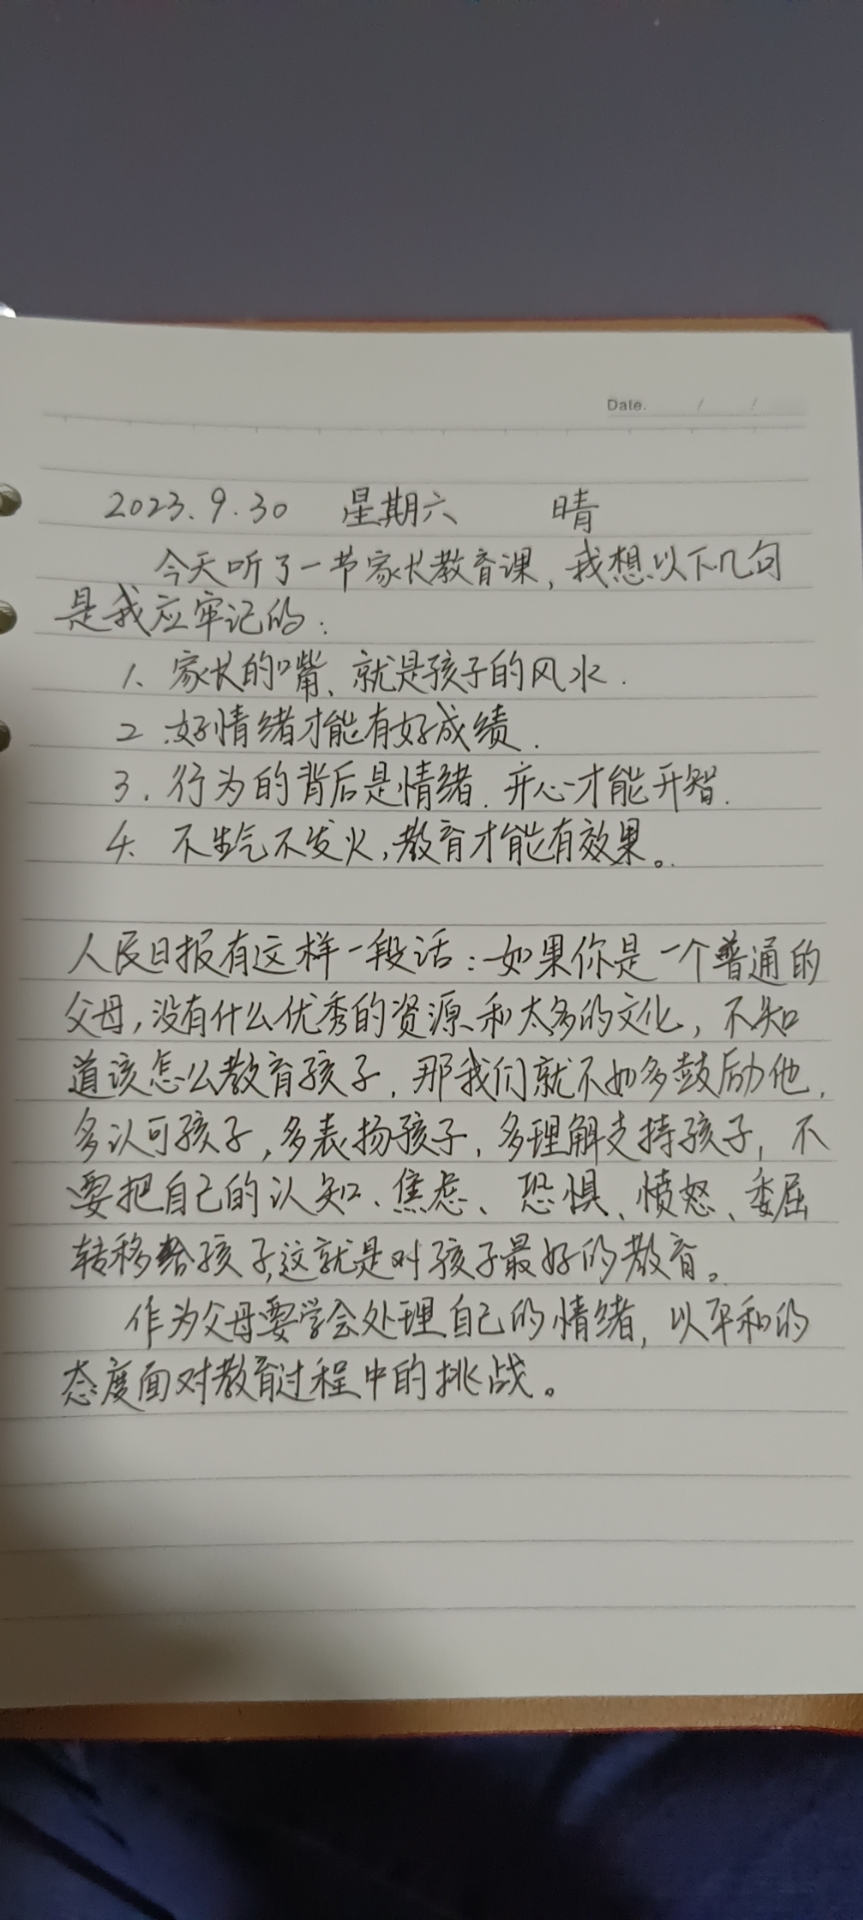 Date. / /
2023.9.30 星期六 晴
今天听了一节家长教育课,我想以下几句
是我应牢记的:
1、家长的嘴、就是孩子的风水.
2 好情绪才能有好成绩.
3.行为的背后是情绪.开心才能开智.
4. 不生气不发火,教育才能有效果。
人民日报有这样一段话:如果你是一个普通的
父母,没有什么优秀的资源和太多的文化,不知
道该怎么教育孩子,那我们就不如多鼓励他,
多认可孩子,多表扬孩子,多理解支持孩子,不
要把自己的认知、焦虑、恐惧、愤怒、委屈
转移给孩子,这就是对孩子最好的教育。
作为父母要学会处理自己的情绪,以平和的
态度面对教育过程中的挑战。